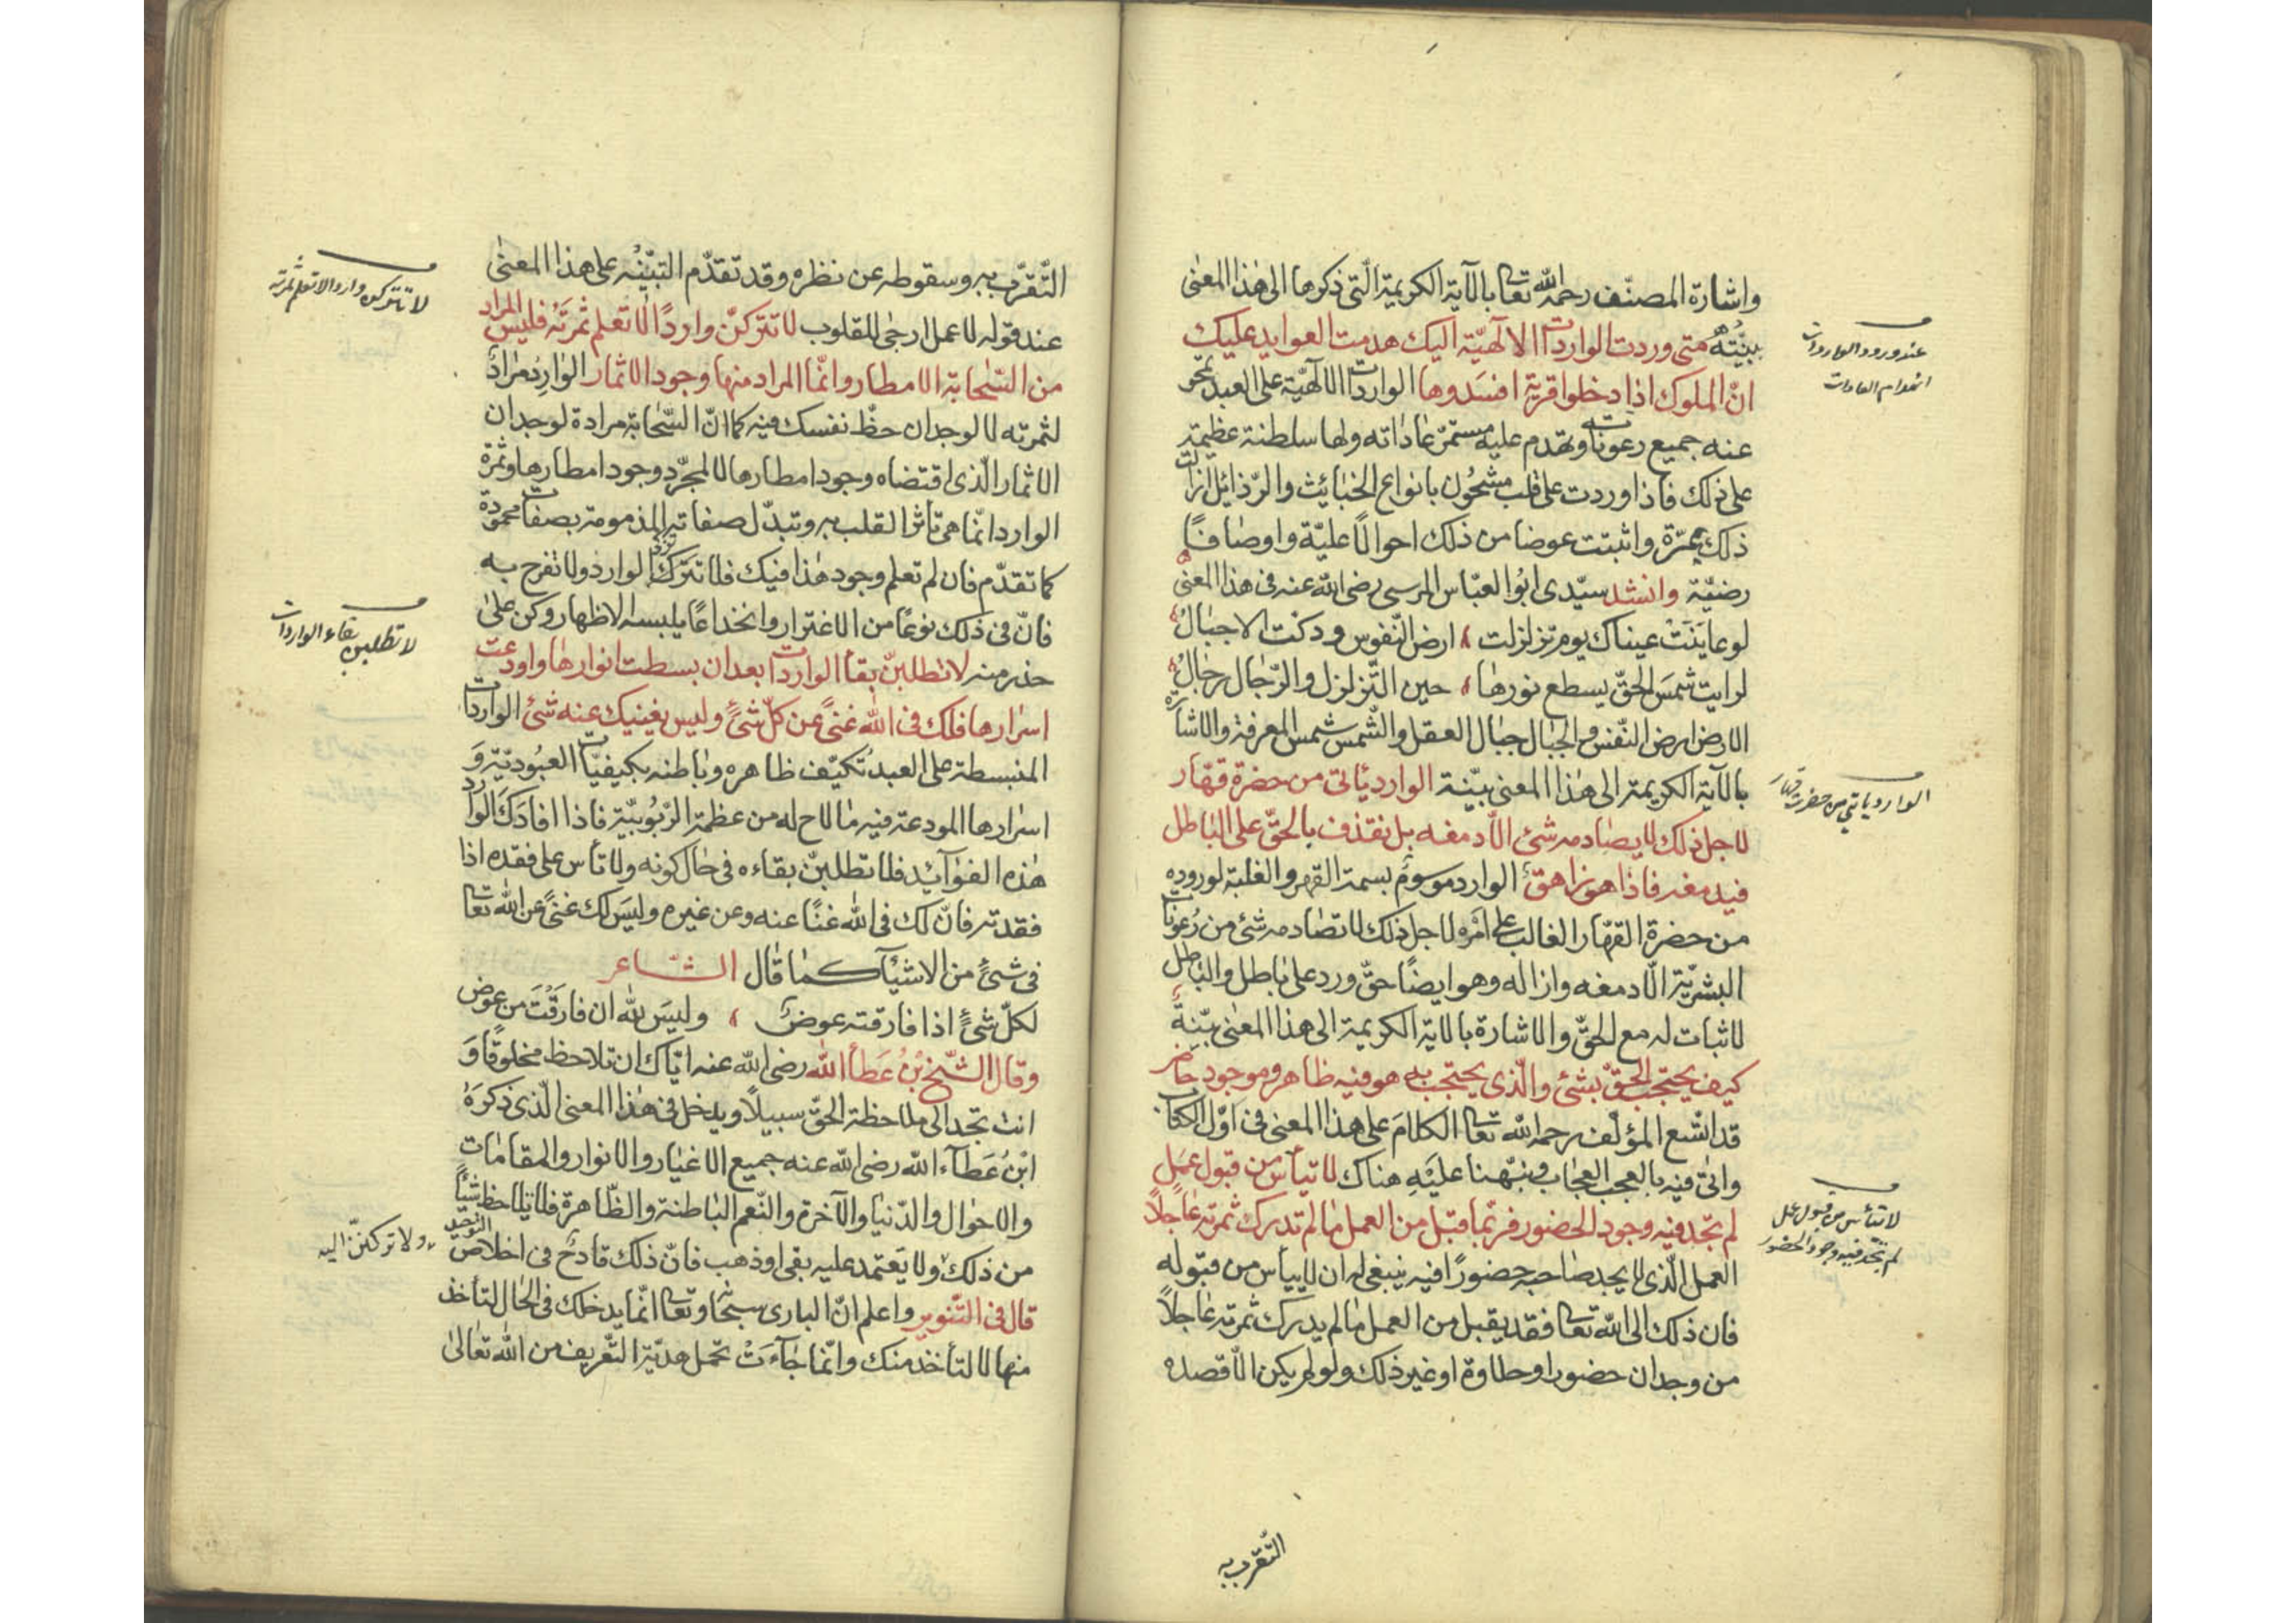 واشارة المصنّف رحمه الله تعالى بالآية الكريمة الّتي ذكرها الى هذا المعنى
بيّنة متى وردت الواردات الالٓهيّة اليك هدمت العوايد عليك
انّ الملوك اذا دخلوا قرية افسدوها الواردات الالٓهيّة على العبد تمحو
عنه جميع رعوناته وتهدم عليه مستمرّ عاداته ولها سلطنة عظيمة
على ذلك فاذا وردت على قلب مشحون بانواع الخبائث والرّذائل ازالت
ذلك بمرّة واثبتت عوضا من ذلك احوالًا عليّة واوصافًا
رضيّة وانشد سيّدى ابو العبّاس المرسى رضى الله عنه فى هذا المعنى
لو عاينت عيناك يوم تزلزلت ، ارض النّفوس ودكت الاجبال
لرايت شمس الحقّ يسطع نورها ، حين التّزلزل والرّجال رجال
الارض ارض النّفس والجبال جبال العقل والشّمس شمس المعرفة والاشارة
بالآية الكريمة الى هذا المعنى بيّنة الوارد ياتى من حضرة قهّار
لاجل ذلك لا يصادمه شئ الّا دمغه بل نقذف بالحقّ على الباطل
فيدمغه فاذا هو زاهق الوارد موسوم بسمة القهر والغلبة لوروده
من حضرة القهّار الغالب على امره لاجل ذلك لا تصادمه شئ من رعونات
البشريّة الّا دمغه وازاله وهو ايضًا حقّ ورد على باطل والباطل
لاثبات له مع الحقّ والاشارة بالاية الكريمة الى هذا المعنى بيّنة
كيف يحتجب الحقّ بشئ والّذى يحتجب به هو فيه ظاهر وموجود حاضر
قد اشبع المؤلّف رحمه الله تعالى الكلام على هذا المعنى فى اوّل الكتاب
واتى فيه بالعجب العجاب ونبّهنا عليه هناك لا تيأس من قبول عمل
لم تجد فيه وجود الحضور فربّما قبّل من العمل ما لم تدرك ثمرته عاجلًا
العمل الّذى لا يجد صاحبه حضورًا فيه ينبغى له ان لا ييأس من قبوله
فان ذلك الى الله تعالى فقد يقبل من العمل ما لم يدرك ثمرته عاجلًا
من وجدان حضور او حلاوة او غير ذلك ولو لم يكن الّا قصده
التّقرّب به
عند ورود الواردات
انهدام العادات
الوارد ياتي من حضرت قهار
لا تيأس من قبول عمل
لم تجد فيه وجود الحضور
التّقرّب به وسقوطه عن نظره وقد تقدّم التّنبيه على هذا المعنى
عند قوله لا عمل ارجى للقلوب لا تتركنّ واردًا لا تعلم ثمرته فليس المراد
من السّحابة الامطار وانّما المراد منها وجود الاثمار الوارد مراد
لثمرته لا لوجدان حظّ نفسك فيه كما انّ السّحابة مرادة لوجدان
الاثمار الّذى اقتضاه وجود امطارها لا لمجرّد وجود امطارها وثمرة
الوارد انّما هى تأثّر القلب به وتبدّل صفاته المذمومة بصفات محمودة
كما تقدّم فان لم تعلم وجود هذا فيك فلا تتزكّ الوارد ولا تفرح به
فانّ فى ذلك نوعًا من الاغترار وانخداعًا يلبسه الاظهار وكن على
حذر منه لا تطلبنّ بقاء الواردات بعد ان بسطت انوارها واودعت
اسرارها فلك فى الله غنىً عن كلّ شئ وليس يغنيك عنه شئ الواردات
المنبسطة على العبد تكيّف ظاهره وباطنه بكيفيّات العبوديّة و
اسرارها المودعة فيه ما لاح له من عظمة الرّبوبيّة فاذا افادك الوارد
هذه الفوآئد فلا تطلبنّ بقاءه فى حال كونه ولا تأس على فقده اذا
فقدته فانّ لك فى الله غنًا عنه وعن غيره وليس لك غنىً عن الله تعالى
فى شئ من الاشيآء كما قال الشّاعر
لكلّ شئ اذا فارقته عوض ، وليس لله ان فارقت من عوض
وقال الشّيخ بن عطاء الله رضى الله عنه ايّاك ان تلاحظ مخلوقًا و
انت تجد الى ملاحظة الحقّ سبيلًا ويدخل فى هذا المعنى الّذى ذكره
ابن عطآء الله رضى الله عنه جميع الاغيار والانوار والمقامات
والاحوال والدّنيا والآخرة والنّعم الباطنة والظّاهرة فلا يلاحظ شيأً
من ذلك ولا يعتمد عليه بقى او ذهب فانّ ذلك قادح فى اخلاص التوحيد
قال فى التّنوير واعلم انّ البارى سبحانه وتعالى انّما يدخلك فى الحال لتأخذ
منها لا لتأخذ منك وانّما جآءت تحمل هديّة التّعريف من الله تعالى
لا تتركن وارد الا تعلم ثمرته
لا تطلبن بقاء الواردات
ولا تركننّ اليه